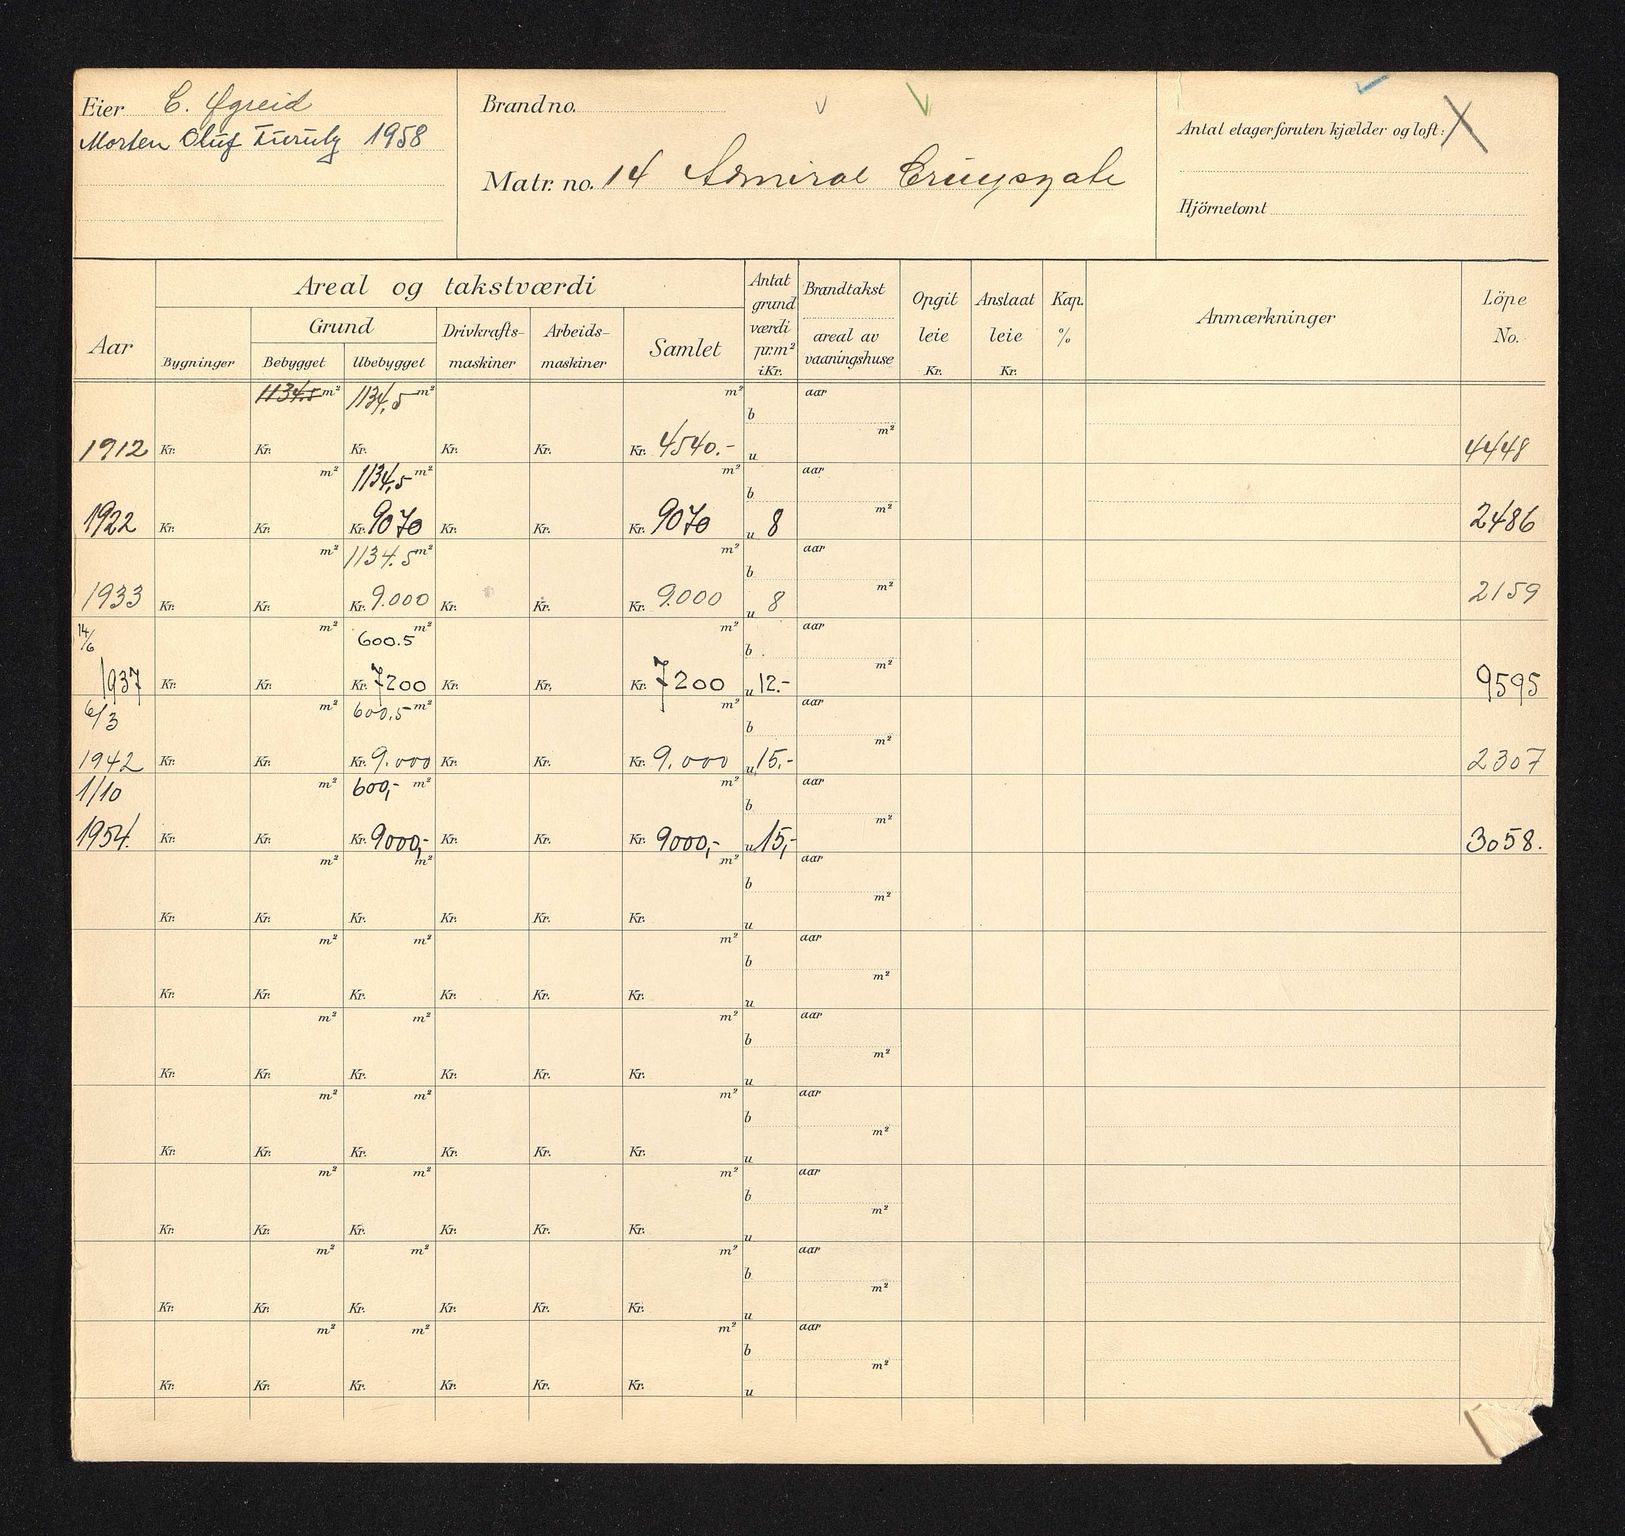 Eier C. Øgreid
Morten Oluf 1958
Brand no.
Matr. no. 14 Admiral Cruysgate
Antal etager foruten kjælder og loft:
Hjörnetomt
Aar
Areal og takstværdi
Bygninger
Grund
Bebygget
Ubebygget
Drivkrafts-
maskiner
Arbeids-
maskiner
Samlet
Antat
grund
værdi
pr. m²
i Kr.
Brandtakst
areal av
vaaningshuse
Opgit
leie
Kr.
Anslaat
leie
Kr.
Kap.
%
Anmærkninger
Löpe
No.
1134.5 m² 1134,5 m² m² b aar
1912 Kr. Kr. Kr. Kr. Kr. Kr. 4540.- u m² 4448
m² 1134,5 m² m² b aar
1922 Kr. Kr. Kr. 9070 Kr. Kr. Kr. 9070 u 8 m² 2486
m² 1134.5 m² m² b aar
1933 Kr. Kr. Kr. 9.000 Kr. Kr. Kr. 9.000 u 8 m² 2159
14/6 m² 600.5 m² m² b aar
1937 Kr. Kr. Kr. 7200 Kr. Kr. Kr. 7200 u 12.- m² 9595
6/3 m² 600,5 m² m² b aar
1942 Kr. Kr. Kr. 9.000 Kr. Kr. Kr. 9.000 u 15.- m² 2307
1/10 m² 600,- m² m² b aar
1954. Kr. Kr. Kr. 9000,- Kr. Kr. Kr. 9000,- u 15,- m² 3058.
m² m² m² b aar
Kr. Kr. Kr. Kr. Kr. Kr. u m²
m² m² m² b aar
Kr. Kr. Kr. Kr. Kr. Kr. u m²
m² m² m² b aar
Kr. Kr. Kr. Kr. Kr. Kr. u m²
m² m² m² b aar
Kr. Kr. Kr. Kr. Kr. Kr. u m²
m² m² m² b aar
Kr. Kr. Kr. Kr. Kr. Kr. u m²
m² m² m² b aar
Kr. Kr. Kr. Kr. Kr. Kr. u m²
m² m² m² b aar
Kr. Kr. Kr. Kr. Kr. Kr. u m²